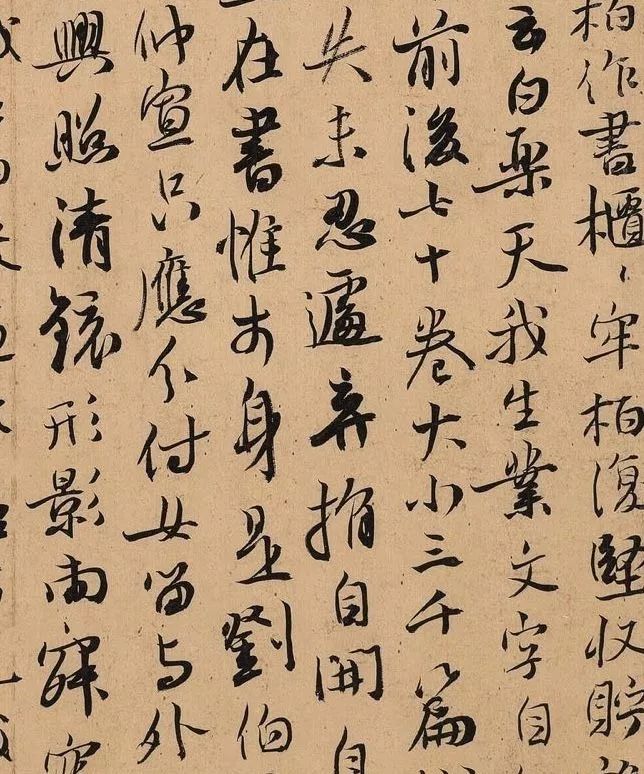 柏作書櫃〻牢柏復堅收貯
云白樂天我生業文字自
前後七十卷大小三千篇
失未忍遽弃捐自開自
在書惟前身是劉伯
仲宣只應分付女留与外
興照清鏡形影兩寂